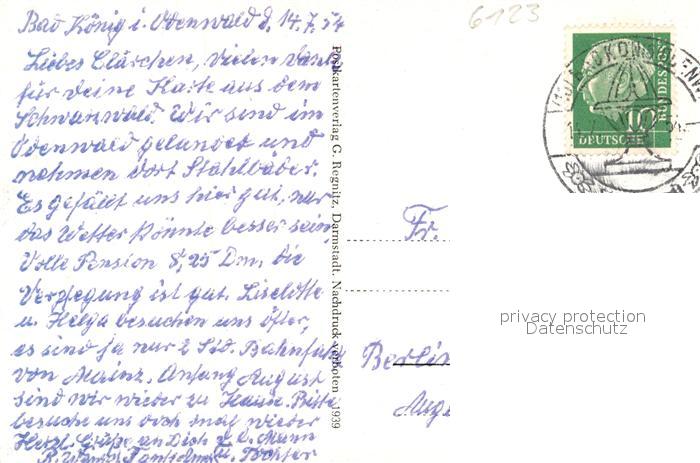 Bad König i. Odenwald d. 14.7.54
Liebes Clärchen, vielen Dank
für Deine Karte aus dem
Schwarzwald. Wir sind im
Odenwald gelandet und
nehmen dort Stahlbäder.
Es gefällt uns hier gut, nur
das Wetter könnte besser sein
Volle Pension 8,25 Dm, die
Verpflegung ist gut. Liselotte
u. Helga besuchen uns öfter,
es sind ja nur 2 Std. Bahnfahrt
von Mainz. Anfang August
sind wir wieder zu Hause. Bitte
besuche uns doch mal wieder
Herzl. Grüße an Dich u. d. Mann
u. Tochter
Postkartenverlag G. Regnitz, Darmstadt. Nachdruck verboten 1939
6123
10
DEUTSCHE
BUNDESP
Fr.
Berlin
privacy protection
Datenschutz